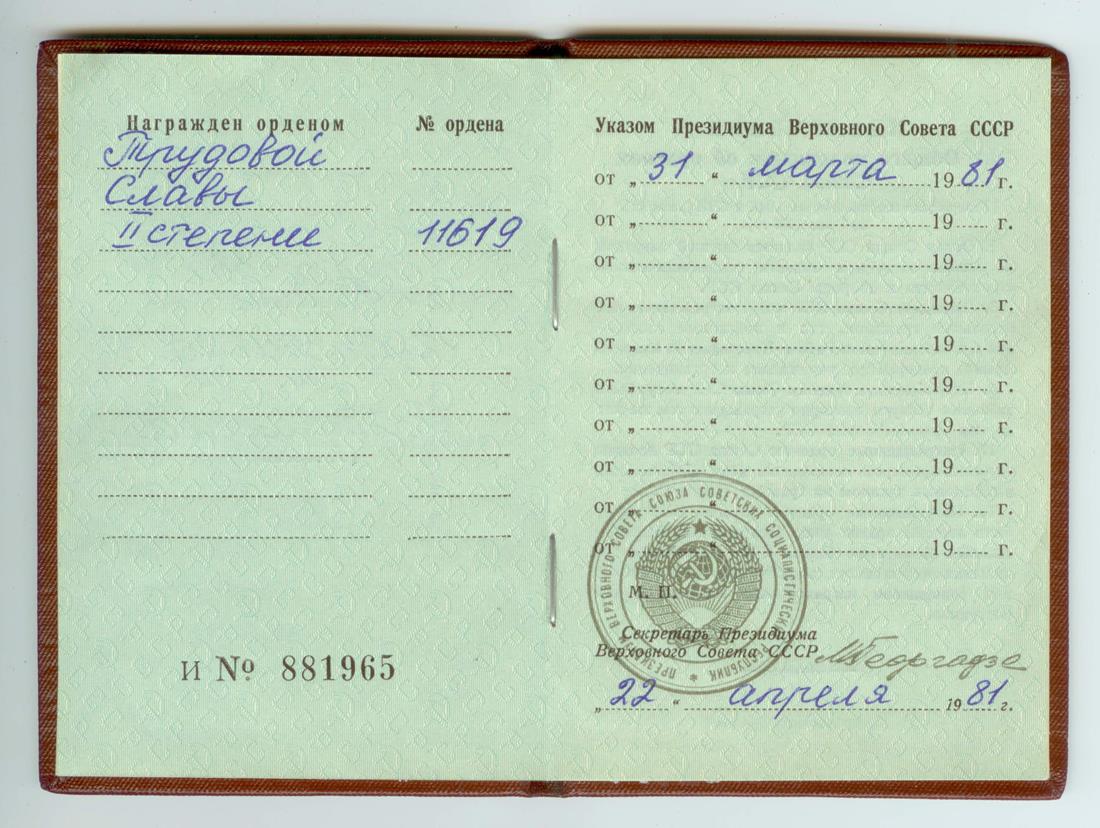 Награжден орденом № ордена
Трудовой
Славы
II степени 11619
И № 881965
Указом Президиума Верховного Совета СССР
от „ 31 “ марта 19 81 г.
от „ “ 19 г.
от „ “ 19 г.
от „ “ 19 г.
от „ “ 19 г.
от „ “ 19 г.
от „ “ 19 г.
от „ “ 19 г.
от „ “ 19 г.
от „ “ 19 г.
ПРЕЗИДИУМ ВЕРХОВНОГО СОВЕТА СОЮЗА СОВЕТСКИХ СОЦИАЛИСТИЧЕСКИХ РЕСПУБЛИК *
М. П.
Секретарь Президиума
Верховного Совета СССР МГеоргадзе
„ 22 “ апреля 19 81 г.